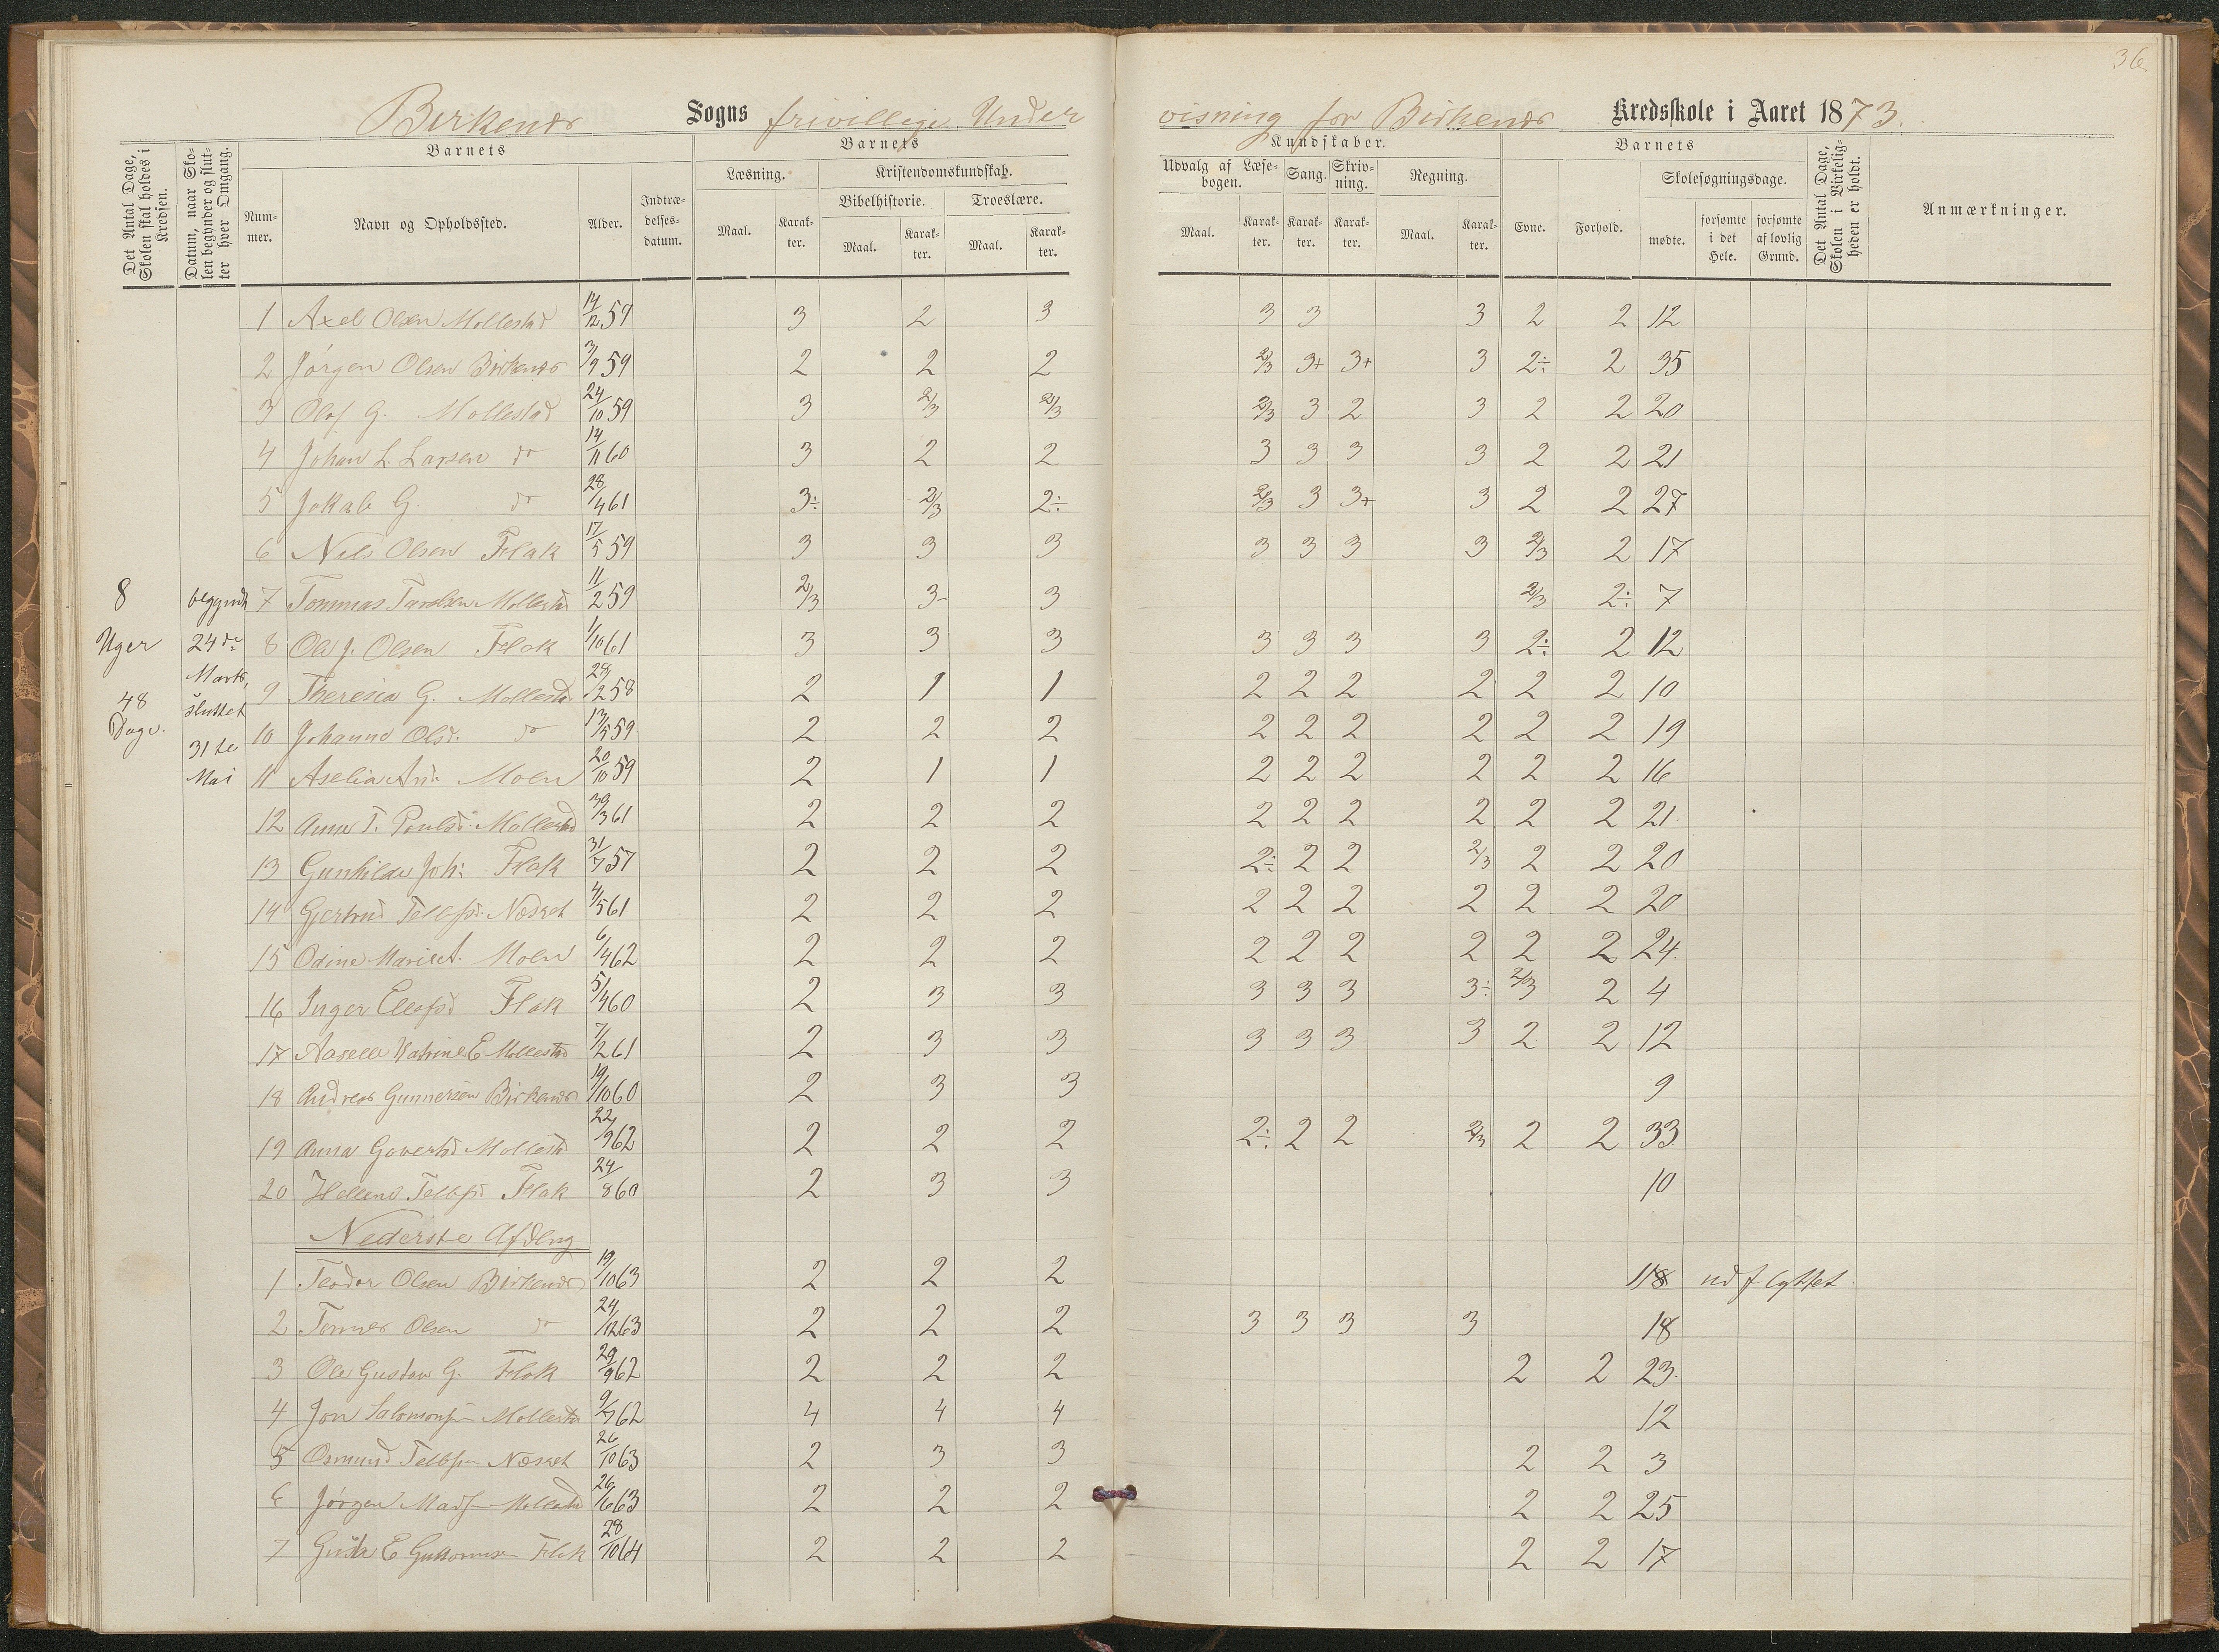 36
Birkenes Sogns frivillige Undervisning for Birkenes Kredsskole i Aaret 1873.
Det Antal Dage, Skolen skal holdes i Kredsen.
Datum, naar Skolen begynder og slutter hver Omgang.
Barnets
Nummer.
Navn og Opholdssted.
Alder.
Indtrædelsesdatum.
Barnets
Læsning.
Maal.
Karakter.
Kristendomskundskab.
Bibelhistorie.
Maal.
Karakter.
Troeslære.
Maal.
Karakter.
Kundskaber.
Udvalg af Læsebogen.
Maal.
Karakter.
Sang.
Karakter.
Skrivning.
Karakter.
Regning.
Maal.
Karakter.
Barnets
Evne.
Forhold.
Skolesøgningsdage.
mødte.
forsømte i det Hele.
forsømte af lovlig Grund.
Det Antal Dage, Skolen i Virkeligheden er holdt.
Anmærkninger.
8 Uger 48 Dage.
begyndt 24de Marts, sluttet 31te Mai
1 Axel Olsen Mollestad 14/12 59 3 2 3 3 3 3 2 2 12
2 Jörgen Olsen Birkenes 3/9 59 2 2 2 2/3 3+ 3+ 3 2÷ 2 35
3 Olaf G. Mollestad 24/10 59 3 2/3 2/3 2/3 3 2 3 2 2 20
4 Johan L. Larsen do 14/11 60 3 2 2 3 3 3 3 2 2 21
5 Jakob G. do 28/4 61 3÷ 2/3 2÷ 2/3 3 3+ 3 2 2 27
6 Nils Olsen Flak 17/5 59 3 3 3 3 3 3 3 2/3 2 17
7 Tommas Mollestad 11/2 59 2/3 3- 3 2/3 2÷ 7
8 Ole J. Olsen Flak 1/10 61 3 3 3 3 3 3 3 2÷ 2 12
9 Theresia G. Mollestad 28/12 58 2 1 1 2 2 2 2 2 2 10
10 Johanne Olsd. do 13/5 59 2 2 2 2 2 2 2 2 2 19
11 Aselia And. Moen 20/10 59 2 1 1 2 2 2 2 2 2 16
12 Anne T. Poulsd. Mollestad 30/3 61 2 2 2 2 2 2 2 2 2 21.
13 Gunhilde Joh: Flak 31/7 57 2 2 2 2÷ 2 2 2/3 2 2 20
14 Gjertrud Tellefsd. Næset 4/5 61 2 2 2 2 2 2 2 2 2 20
15 Odine Marie A. Moen 6/4 62 2 2 2 2 2 2 2 2 2 24.
16 Inger Ellefsd Flak 5/4 60 2 3 3 3 3 3 3÷ 2/3 2 4
17 Katrine E Mollestad 7/2 61 2 3 3 3 3 3 3 2 2 12
18 Andreas Gunnersen Birkenes 19/10 60 2 3 3 9
19 Anna Govertsd Mollestad 22/9 62 2 2 2 2÷ 2 2 2/3 2 2 33
20 Hellene Tellefsd Flak 24/8 60 2 3 3 10
Nederste Afdlng
1 Teodor Olsen Birkenes 19/10 63 2 2 2 18 udflyttet.
2 Olsen do 24/12 63 2 2 2 3 3 3 3 18
3 Ole Gustav G. Flak 29/9 62 2 2 2 2 2 23.
4 Jon Salomonsen Mollestad 9/7 62 4 4 4 12
5 Osmund Tellefsen Næset 26/10 63 2 3 3 2 2 3
6 Jörgen Madsen Mollestad 26/6 63 2 2 2 2 2 25
7 E Guttormsen Flak 28/10 64 2 2 2 2 2 17